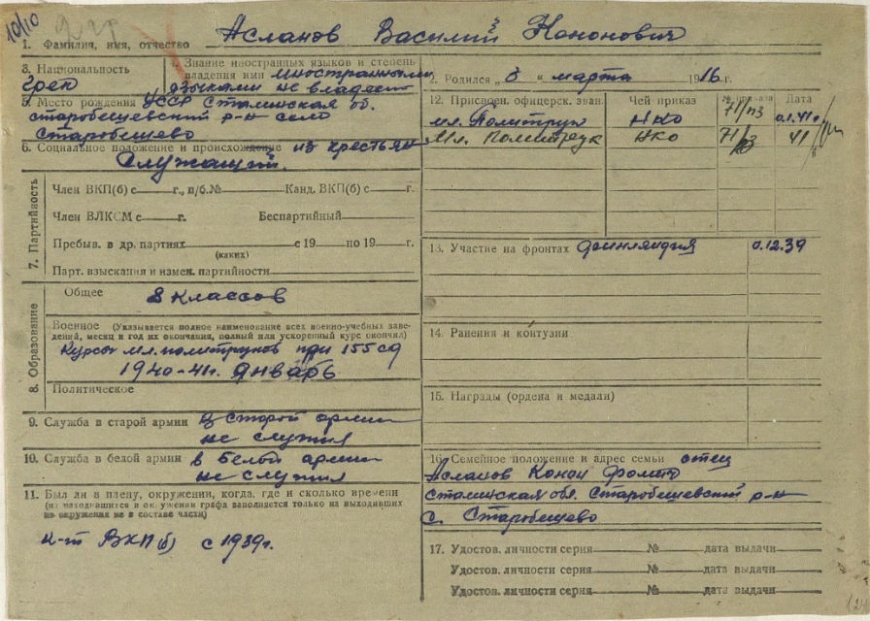 10/10
1. Фамилия, имя, отчество Асланов Василий Кононович
3. Национальность
грек
4. Знание иностранных языков и степень
владения ими иностранными
языками не владеет
2. Родился „ 8 “ марта 1916 г.
5. Место рождения УССР Сталинская об.
старобешевский р-н село
Старобешево
6. Социальное положение и происхождение из крестьян
Служащий.
7. Партийность
Член ВКП(б) с г., п/б.№ Канд. ВКП(б) с г.
Член ВЛКСМ с г. Беспартийный
Пребыв. в др. партиях с 19 по 19 г.
(каких)
Парт. взыскания и измен. партийности
8. Образование
Общее
8 классов
Военное (Указывается полное наименование всех военно-учебных заве-
дений, месяц и год их окончания, полный или ускоренный курс окончил)
Курсы мл. политруков при 155 сд
1940-41г. январь
Политическое
9. Служба в старой армии в старой армии
не служил
10. Служба в белой армии в белой армии
не служил
11. Был ли в плену, окружении, когда, где и сколько времени
(на находившихся в окружении графа заполняется только на выходивших
из окружения не в составе части)
к-т ВКП(б) с 1939г.
12. Присвоен. офицерск. зван. Чей приказ № приказа Дата
мл. Политрук НКО 71/пз 01.41г
Мл. Политрук НКО 71/пз 41
13. Участие на фронтах Финляндия 0.12.39
14. Ранения и контузии
15. Награды (ордена и медали)
16. Семейное положение и адрес семьи отец
Асланов Конон
Сталинская обл. Старобешевский р-н
с. Старобешево
17. Удостов. личности серия № дата выдачи
Удостов. личности серия № дата выдачи
Удостов. личности серия № дата выдачи